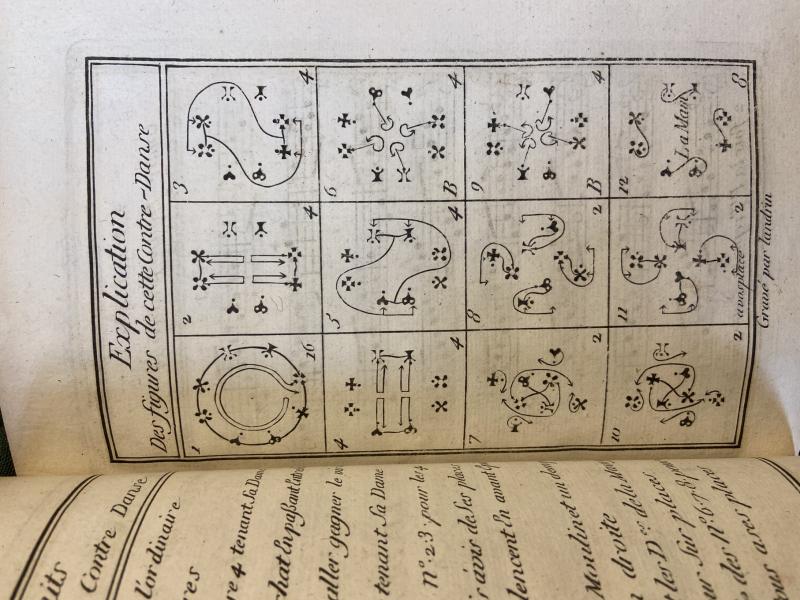 Explication
Des figures de cette Contre-Danse
1
16
2
4
3
4
4
4
5
4
6
B
4
7
2
8
2
9
B
4
10
2
11
avosplaces 2
12
La Main
8
Gravé par landrin
Contre Danse
l'ordinaire
re 4 tenant sa Dame
chat En paßant
aller gagner le
tenant sa Dame
n.º 2.3. pour les 4
vis de ses places
lencent En avant
Moulinet un
droite
les D.es de la
Sur Sir places
des N.º 6.7.8.
vous a ses places